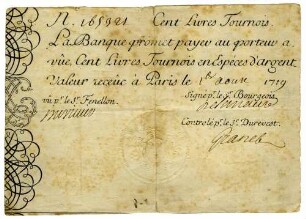 N. 165921 Cent Livres Tournois.
La Banque promet payer au porteur a
vüe, Cent Livres Tournois en Especes d'argent,
Valeur receüe à Paris le 1er 1719
vû pr. le Sr. Fenellon. Signé pr. le Sr. Bourgeois.
Controlé pr. le Sr. Durevest.
Granet